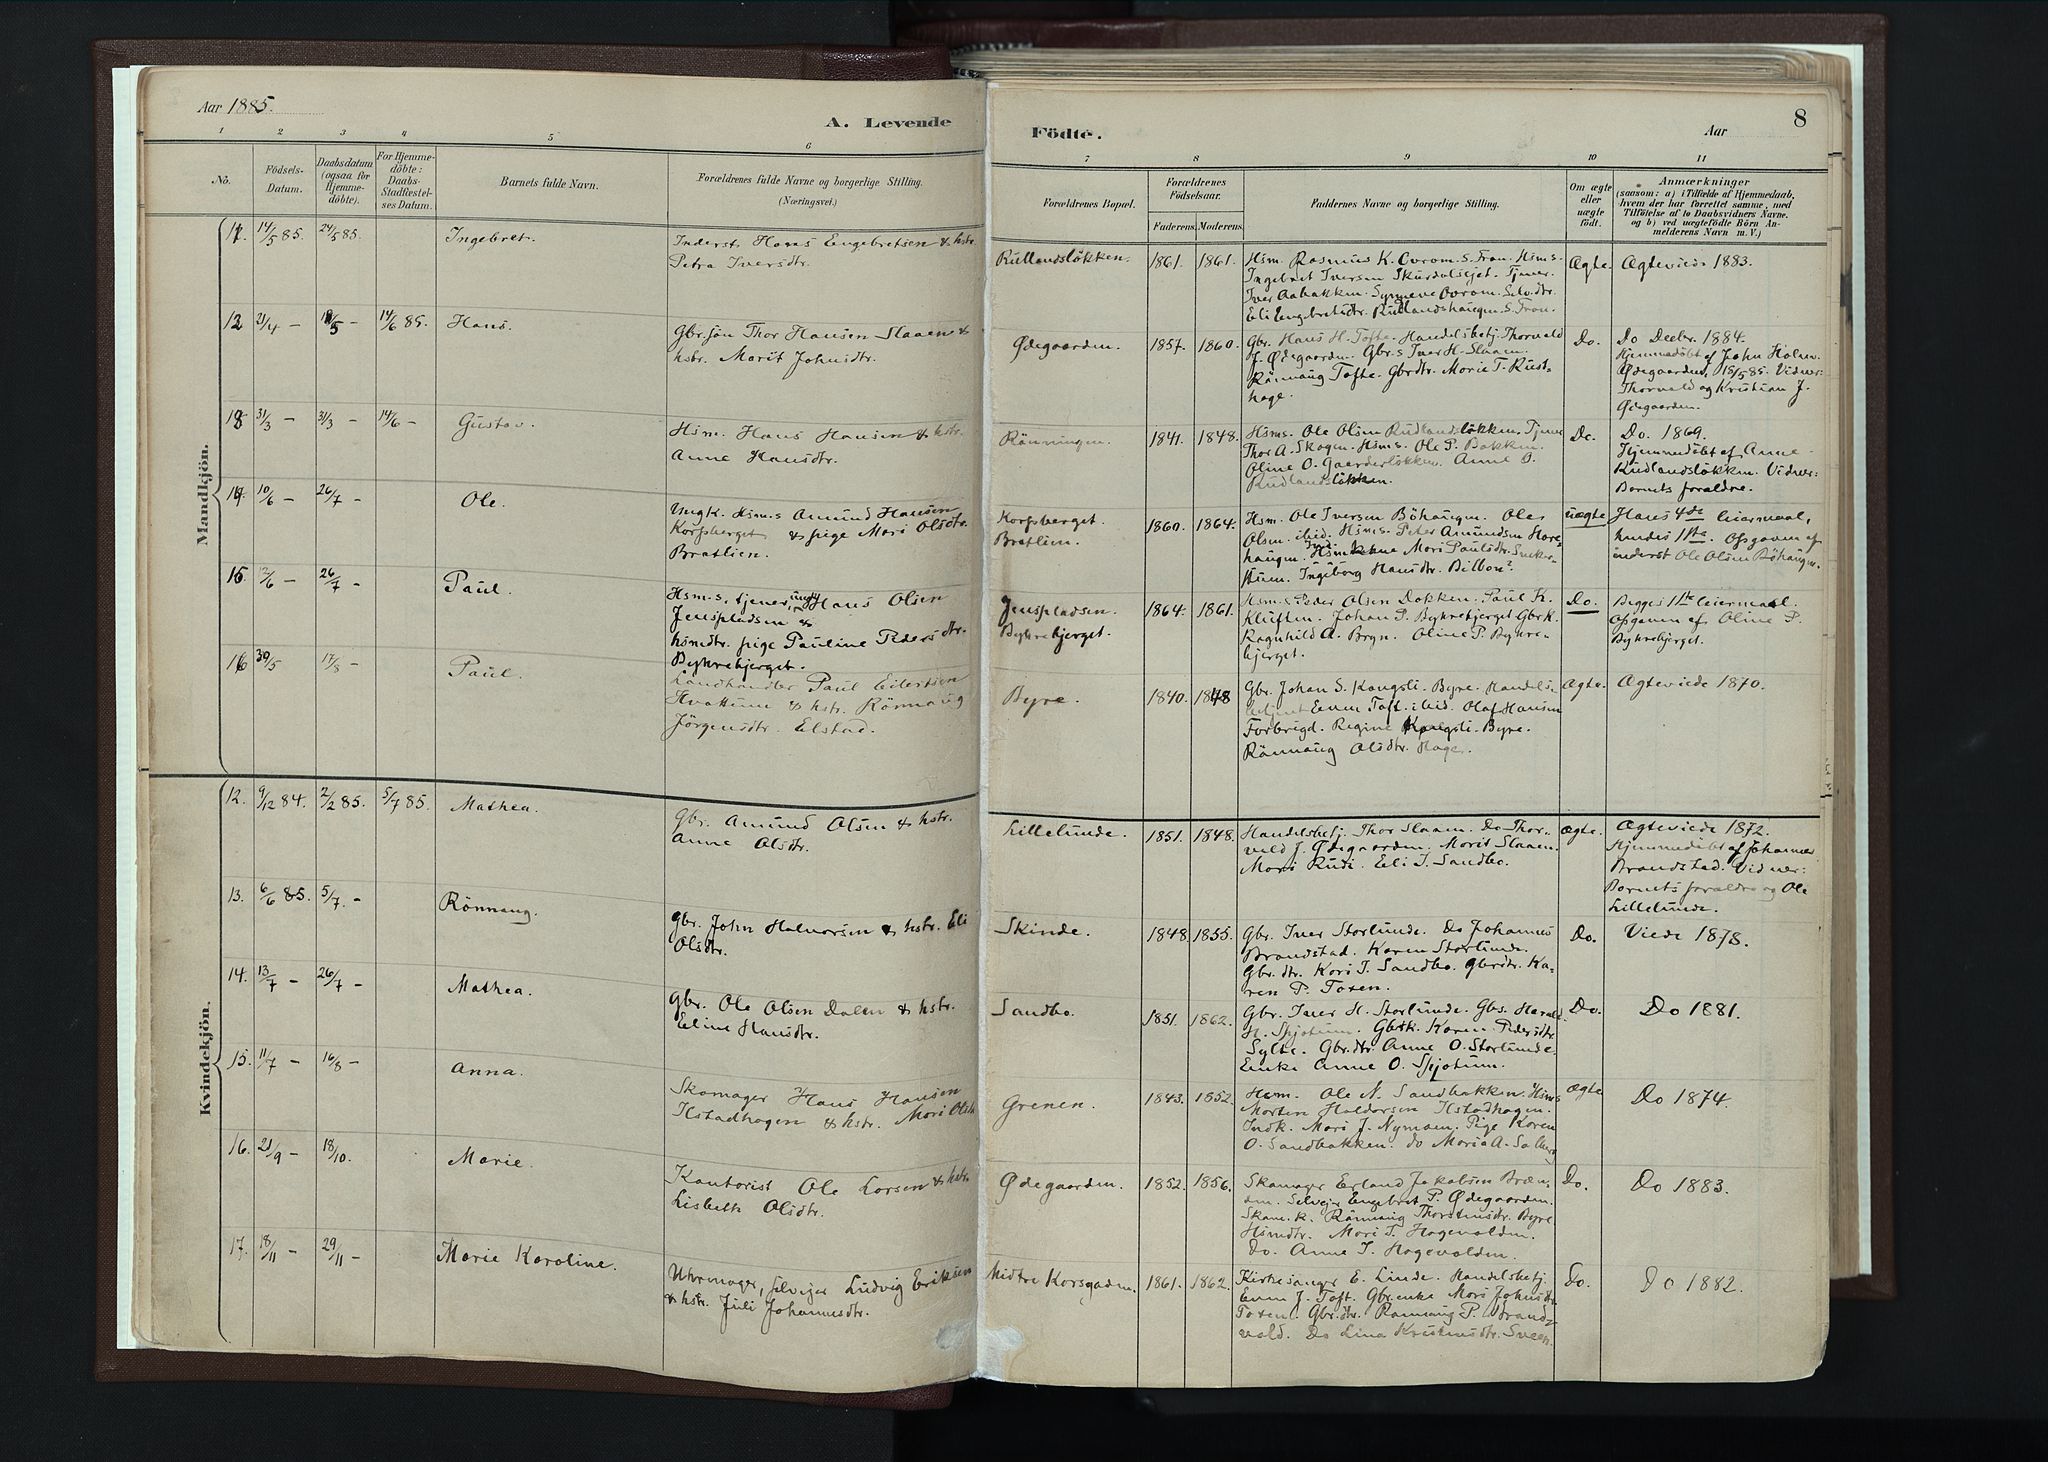 Aar 1885.
A. Levende
1 2 3 4 5 6
No.
Födsels-
Datum.
Daabsdatum
(ogsaa for
Hjemme-
döbte).
For Hjemme-
döbte:
Daabs-
Stadfæstel-
ses Datum.
Barnets fulde Navn.
Forældrenes fulde Navne og borgerlige Stilling.
(Næringsvei.)
Mandkjön.
11. 14/5 85. 24/5 85. Ingebret.
Inderst. Hans Engebretsen & hstr.
Petra Iversdtr.
12 21/4 – /5 – 14/6 85. Hans.
Gbr.søn Thor Hansen Slaaen &
hstr. Marit Johnsdtr.
13 31/3 – 31/3 – 14/6 – Gustav.
Hsm. Hans Hansen & hstr.
Anne Hansdtr.
14. 10/6 – 26/7 – Ole.
Ungk. Hsm.s Amund Hansen
Korpberget & pige Mari Olsdtr.
Bratlien.
15. 12/6 – 26/7 – Paul.
Hsm.s. tjener, ungk Hans Olsen
Jenspladsen &
hsmdtr. pige Pauline Pedersdtr.
Bykrebjerget.
16 30/5 17/8 – Paul.
Landhandler Paul Eilertsen
Hvattum & hstr. Rönnaug
Jörgensdtr. Elstad.
Kvindekjön.
12. 9/12 84. 2/2 85. 5/7 85. Mathea.
Gbr. Amund Olsen & hstr.
Anne Olsdtr.
13. 6/6 85. 5/7. – Rönnaug.
Gbr. John Halvorsen & hstr. Eli
Olsdtr.
14. 13/7 – 26/7 – Mathea.
Gbr. Ole Olsen Dalen & hstr.
Eline Hansdtr.
15. 11/7 – 16/8 – Anna.
Skomager Hans Hansen
Ilstadhagen & hstr. Mari Olsdtr
16. 21/9 – 18/10. Marie.
Kantorist Ole Larsen & hstr.
Lisbeth Olsdtr.
17. 18/11 – 29/11 – Marie Karoline.
Uhrmager, selveier Ludvig Eriksen
& hstr. Juli Johannesdtr.
Födte.
Aar
8
7 8 9 10 11
Forældrenes Bopæl.
Forældrenes
Födselsaar.
Faderens. Moderens.
Faddernes Navne og borgerlige Stilling.
Om ægte
eller
uægte
födt.
Anmærkninger
(saasom: a) i Tilfælde af Hjemmedaab,
hvem der har forrettet samme, med
Tilföielse af to Daabsvidners Navne.
og b) ved uægtefödte Börn An-
melderens Navn m. V.)
Rullandslökken. 1861. 1861.
Hsm. Rasmus K. Ovrom. S. Fron. Hsm.s.
Ingebret Iversen Skurdalsejet. Tjener
Iver Aabakken. Synneve Ovrom. Selv.dtr.
Eli Engebretsdtr. Rudlandshaugen. S. Fron.
Ægte. Ægteviede 1883.
Ødegaarden. 1857. 1860.
Gbr. Hans H. Tofte. Handelsbetj. Thorvald
J. Ødegaarden. Gbr.s Iver H. Slaaen.
Rönnaug Tofte. Gbrdtr. Marie T. Rust-
hage.
Do. Do Decbr. 1884.
Hjemmedöbt af John Holen
Ødegaarden, 15/5 85. Vidner:
Thorvald og Kristian J.
Ødegaarden.
Rönningen. 1841. 1848.
Hsm.s. Ole Olsen Rudlandslökken. Tjener
Thor A. Skogen. Hsm.s. Ole P. Bakken.
Oline O. Gaarderlökken. Anne O.
Rudlandslökken.
Do. Do. 1869.
Hjemmedöbt af Anne
Rudlandslökken. Vidner:
Barnets forældre.
Korpberget.
Bratlien.
1860. 1864.
Hsm. Ole Iversen Böhaugen. Ole
Olsen. ibid. Hsm.s. Peter Amundsen Hare-
haugen. Mari Paulsdtr.
Ingeborg Hansdtr.
uægte Hans 4de leiermaal,
hendes 1ste. Opgaven af
inderst Ole Olsen Böhaugen.
Jenspladsen.
Bykrebjerget.
1864. 1861.
Hsm.s Peder Olsen Dokken. Paul K.
Kluften. Johan P. Bykrebjerget Gbrk.
Ragnhild A. Bryn. Oline P. Bykre-
bjerget.
Do. Begges 1ste leiermaal.
Opgaven af Oline P.
Bykrebjerget.
Byre. 1840. 1848
Gbr. Johan S. Kongsli. Byre. Handels-
betjent Even Toft. ibid. Olaf Hansen
Forbrigd. Regine Kongsli. Byre.
Rönnaug Olsdtr. Hage.
Ægte. Ægteviede 1870.
Lillelunde. 1851. 1848.
Handelsbetj. Thor Slaaen. Do Thor-
vald J. Ødegaarden. Marit Slaaen.
Mari Rudi. Eli I. Sandbo.
Ægte. Ægteviede 1872.
Hjemmedöbt af Johannes
Brandstad. Vidner:
Barnets forældre og Ole
Lillelunde.
Skinde. 1848 1855.
Gbr. Iver Storlunde. Do Johannes
Brandstad. Karen Storlunde.
Gbr.dtr. Kari I. Sandbo. Gbrdtr. Ka-
ren P. Toxen.
Do. Viede 1878.
Sandbo. 1851. 1862.
Gbr. Iver H. Storlunde. Gbs. Harald
H. Spjotum. Gbrk. Karen Pedersdtr.
Sylte. Gbr.dtr. Anne O. Storlunde.
Enke Anne O. Spjotum.
Do. Do 1881.
Grenen. 1843. 1852.
Hsm. Ole N. Sandbakken. Hsm.s
Morten Haldorsen Ilstadhagen.
Indk. Mari J. Nyman. Pige Karen
O. Sandbakken. do Maria A.
Ægte Do 1874.
Ødegaarden. 1852. 1856.
Skomager Erland Jakobsen Bræn-
den. Selvejer Engebret P. Ødegaarden.
Skom.k. Rönnaug Thorstensdtr. Byre
Hsmdtr. Mari T. Hagevolden.
Do. Anne T. Hagevolden.
Do. Do 1883.
Midtre Korsgaden. 1861. 1862.
Kirkesanger E. Linde. Handelsbetj.
Even J. Toft. Gbr.enke Mari Johnsdtr.
Toxen. Gbr.dtr. Rönnaug P. Brand-
vold. Do Lina Kristensdtr. Sveen.
Do. Do 1882.